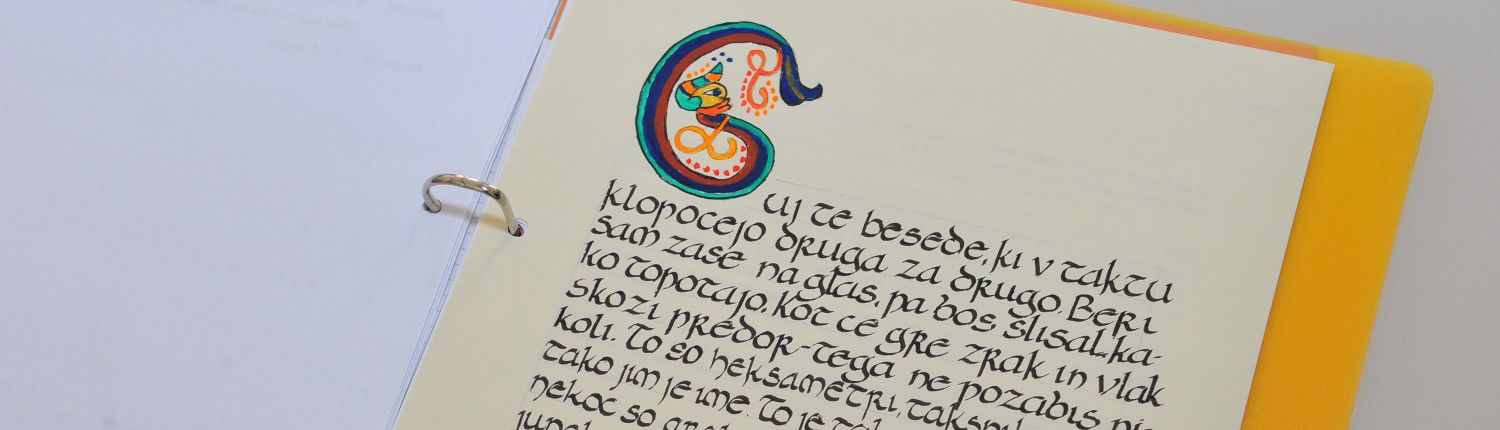 Cuj te besede, ki v taktu
klopocejo druga za drugo. Beri
sam zase na glas, pa bos slisal, ka-
ko topotajo, kot ce gre zrak in vlak
skozi predor-tega ne pozabis ni-
koli. To so heksametri,
tako jim je ime. To je
nekoc so